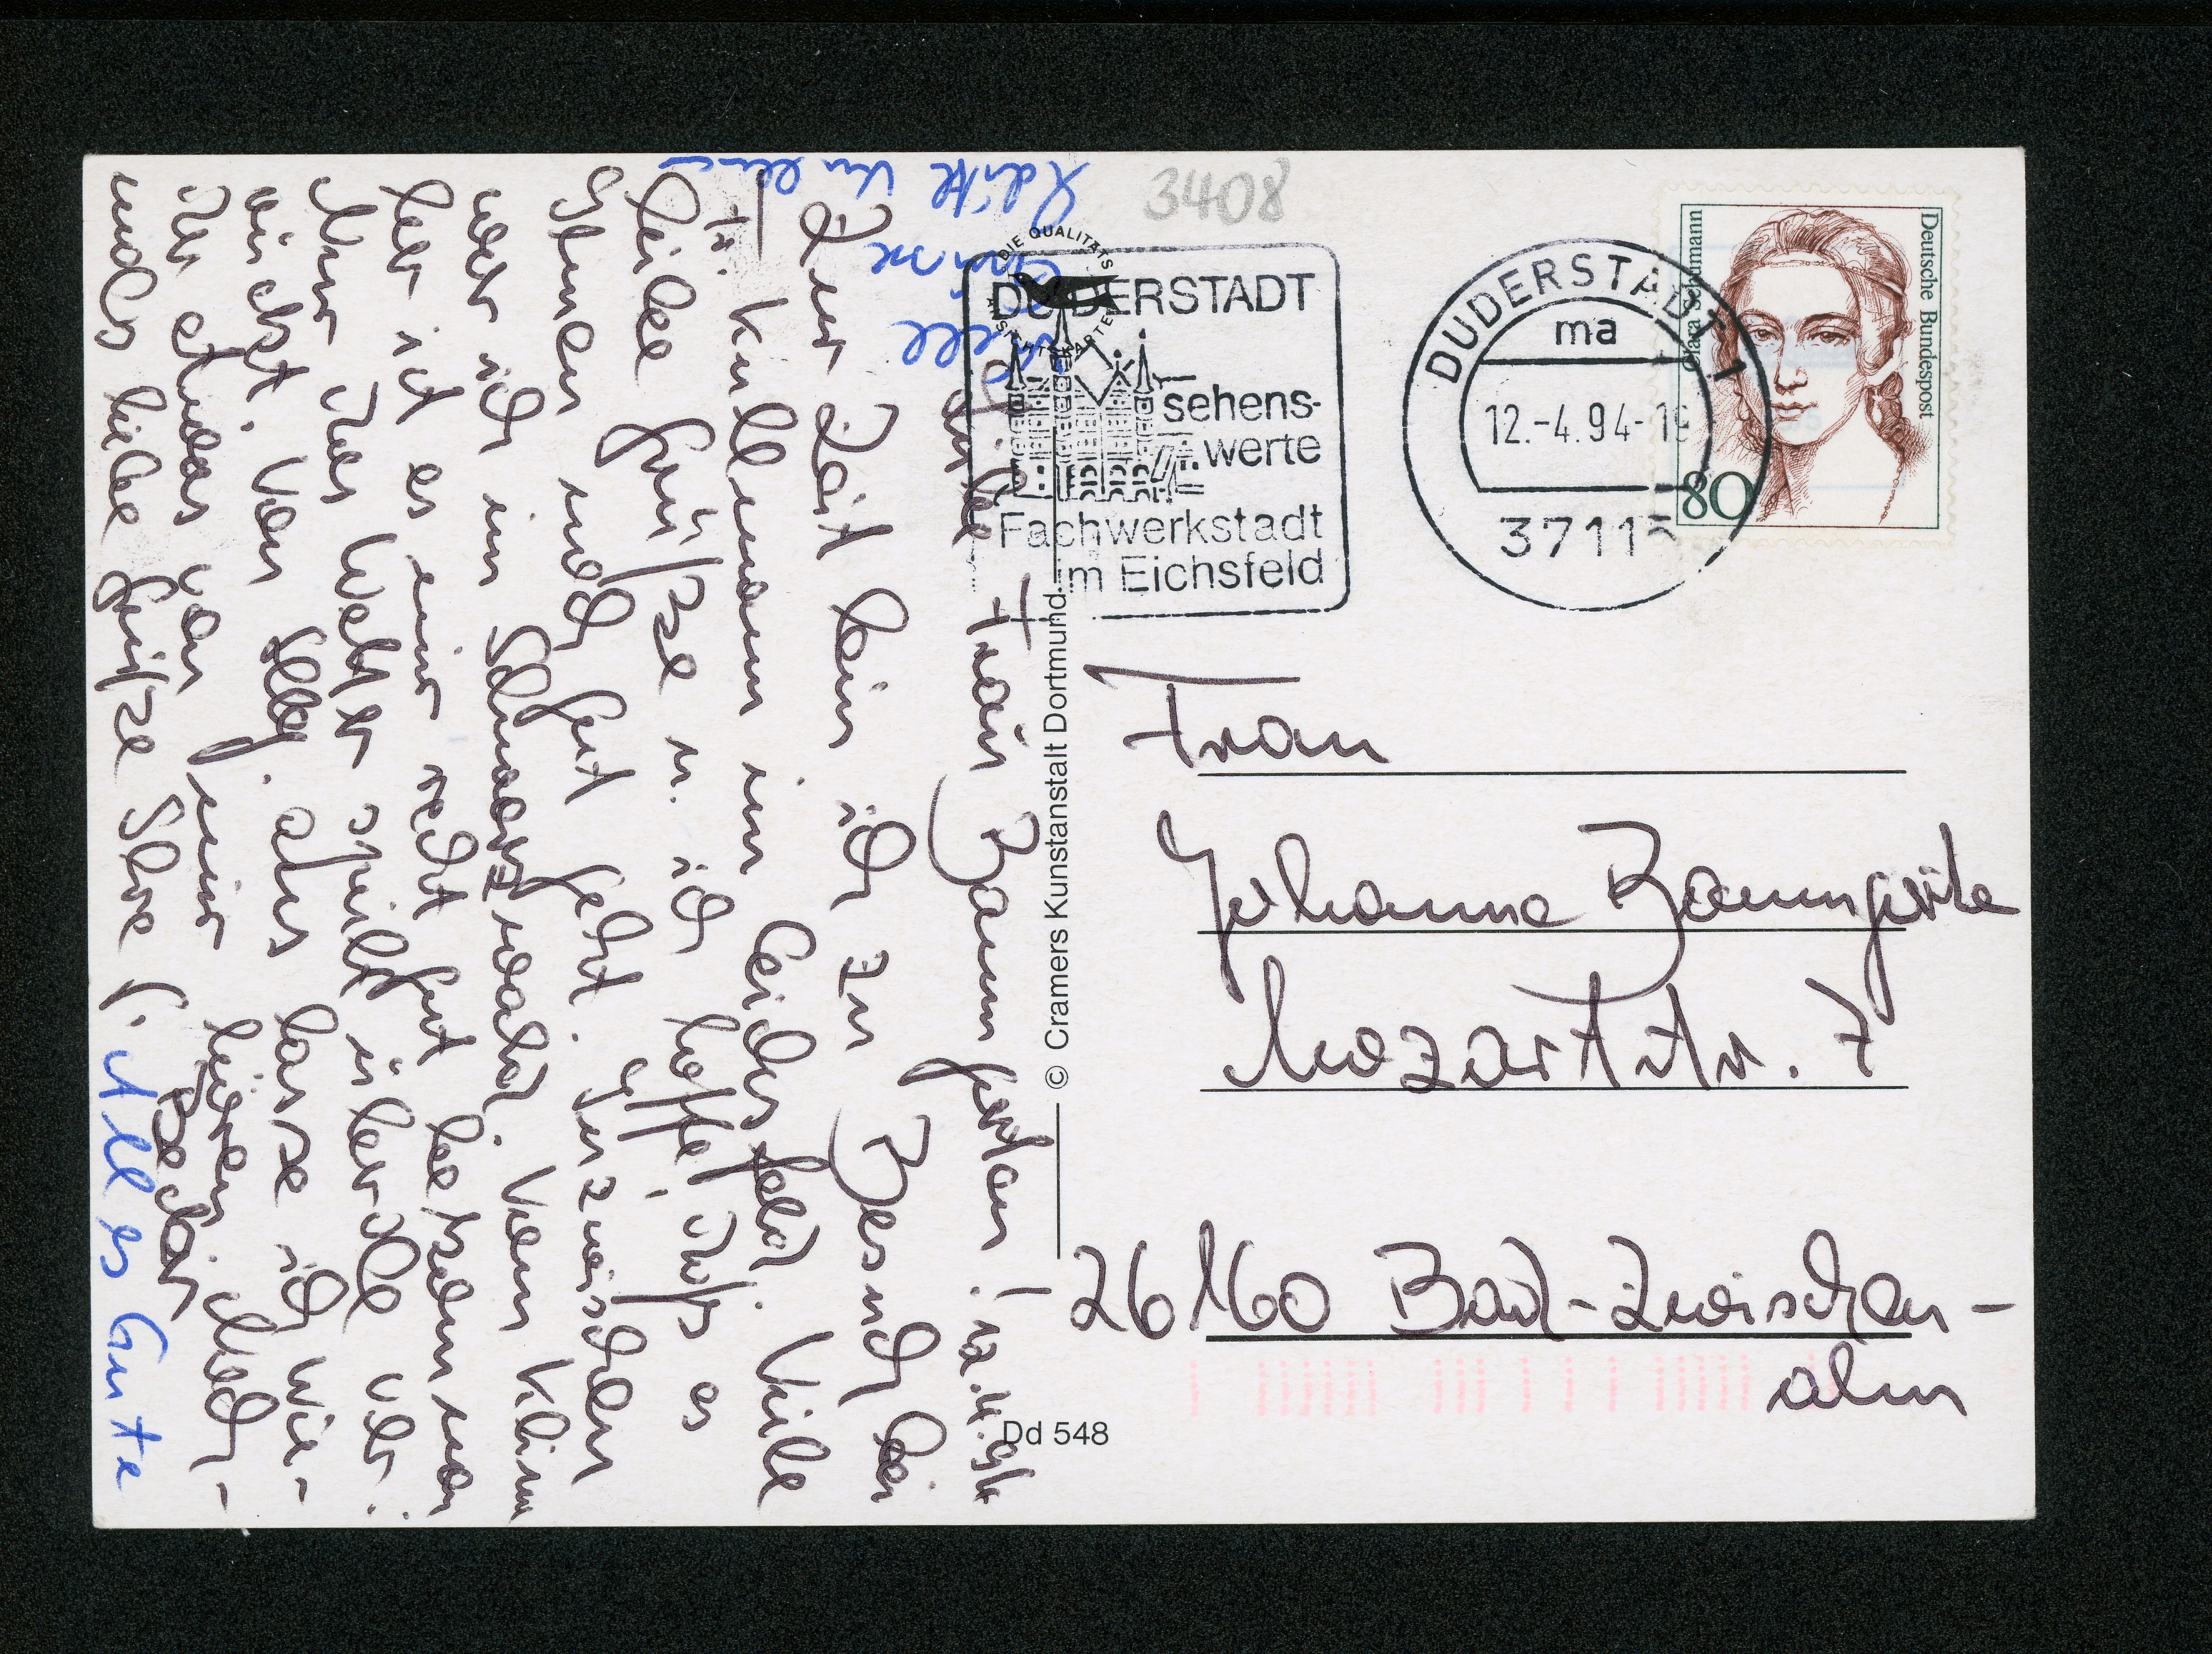 3408
DIE QUALITÄTS
ANSICHTSKARTE
DUDERSTADT
sehens-
werte
Fachwerkstadt
im Eichsfeld
DUDERSTADT 1
ma
12.-4.94-
37115
Deutsche Bundespost
Clara Schumann
80
Frau Baumgarten! 12.4.94
Zur Zeit bin ich zu Besuch bei
Fr. Kullmann im Eichsfeld. Viele
liebe Grüße u. ich hoffe, daß es
Ihnen noch gut geht. Inzwischen
war ich im Schwarzwald. Vom Klima
her ist es mir recht gut bekommen
Nur das Wetter spielt überall ver-
rückt. Von Allg. aus lasse ich wie-
der etwas von mir hören. Noch-
mals liebe Grüße Ihre
Alles Gute
© Cramers Kunstanstalt Dortmund
Dd 548
Frau
Johanna Baumgarte
Mozartstr. 7
26160 Bad-Zwischen-
ahn